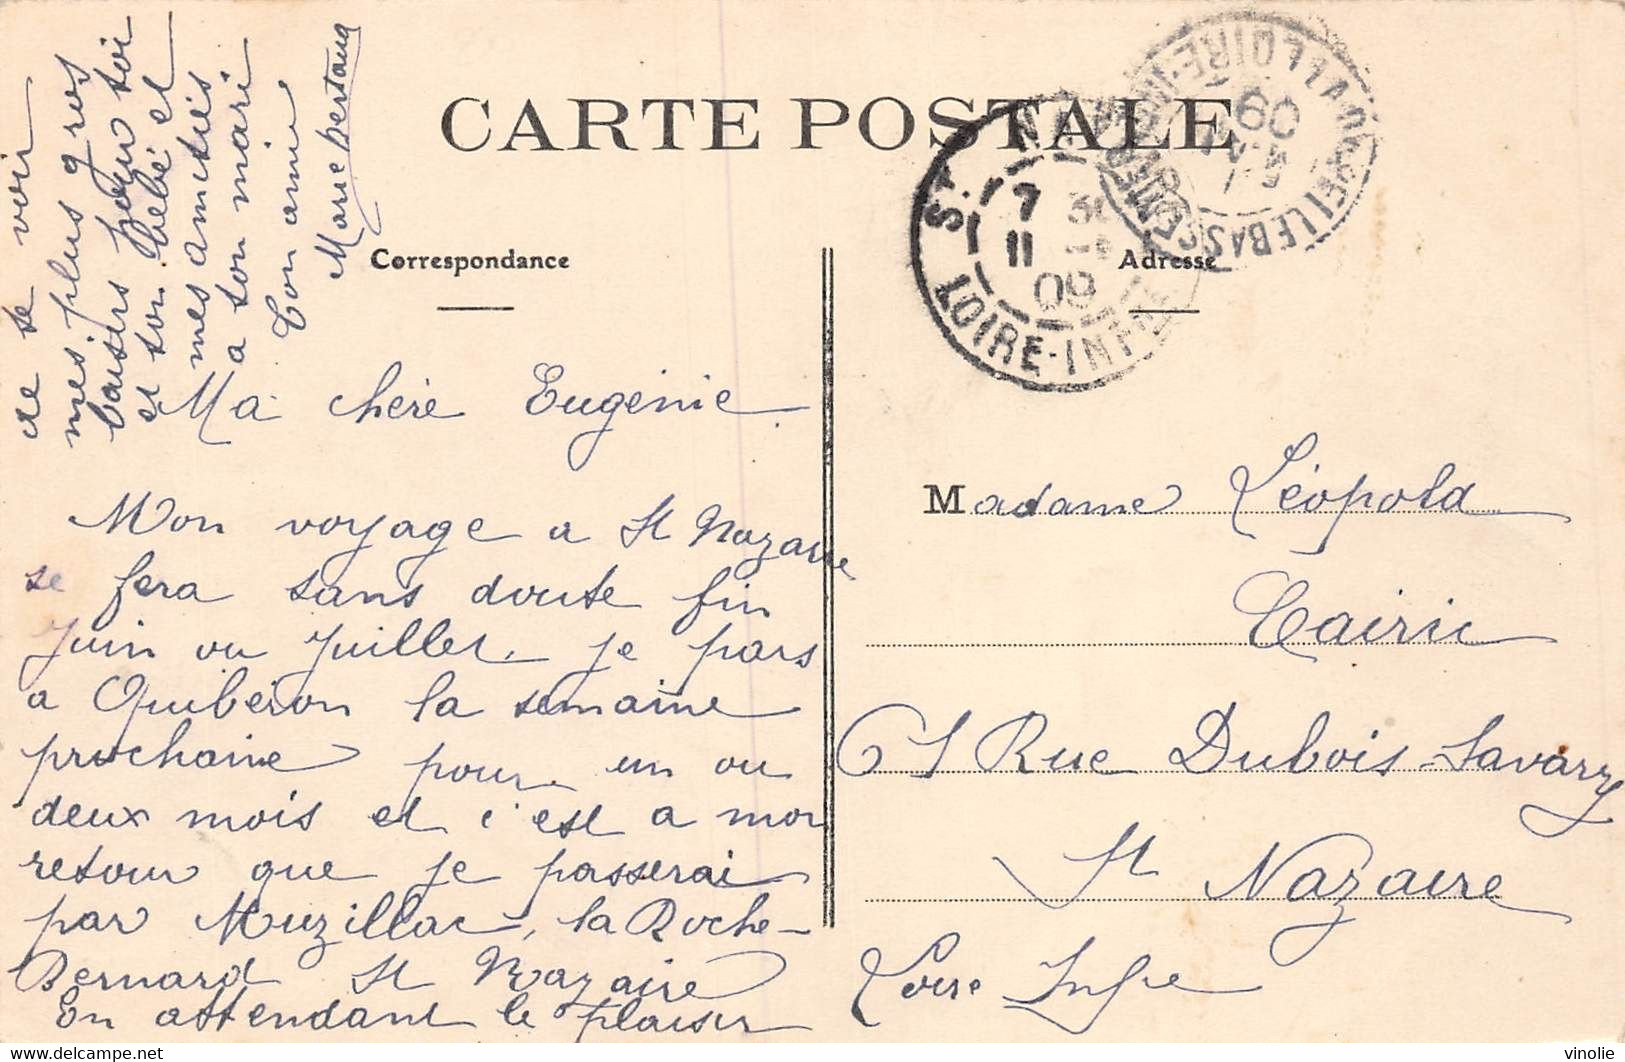 CARTE POSTALE
Correspondance
Adresse
Ma chère Eugénie
Mon voyage a St Nazaire
se fera sans doute fin
Juin ou Juillet. je pars
a Quiberon la semaine
prochaine pour un ou
deux mois et c'est a mon
retour que je passerai
par Muzillac, la Roche-
Bernard St Nazaire
En attendant le plaisir
de te voir
mes plus gros
baisers pour toi
et ton bébé et
mes amitiés
a ton mari
Ton amie
Marie
Madame Léopold
61 Rue Dubois-Savary
St Nazaire
Loire Infre
ST
7 30
11
09
LOIRE-INFRE
09
vinolie
delcampe.net